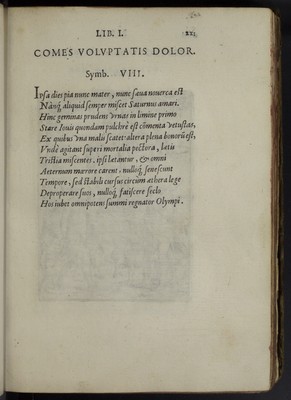 LIB. I.
XXI.
COMES VOLVPTATIS DOLOR.
Symb. VIII.
Ipsa dies pia nunc mater, nunc sæua nouerca est
Nãnq; aliquid semper miscet Saturnus amari.
Hinc geminas prudens vrnas in limine primo
Stare Iouis quondam pulchrè est cõmenta vetustas,
Ex quibus vna malis scatet altera plena bonorũ est,
Vndè agitant superi mortalia pectora, lætis
Tristia miscentes, ipsi lætantur, & omni
Aeternum mærore carent, nulloq; senescunt
Tempore, sed stabili cursus circum æthera lege
Deproperare suos, nulloq; fatiscere seclo
Hos iubet omnipotens summi regnator Olympi.